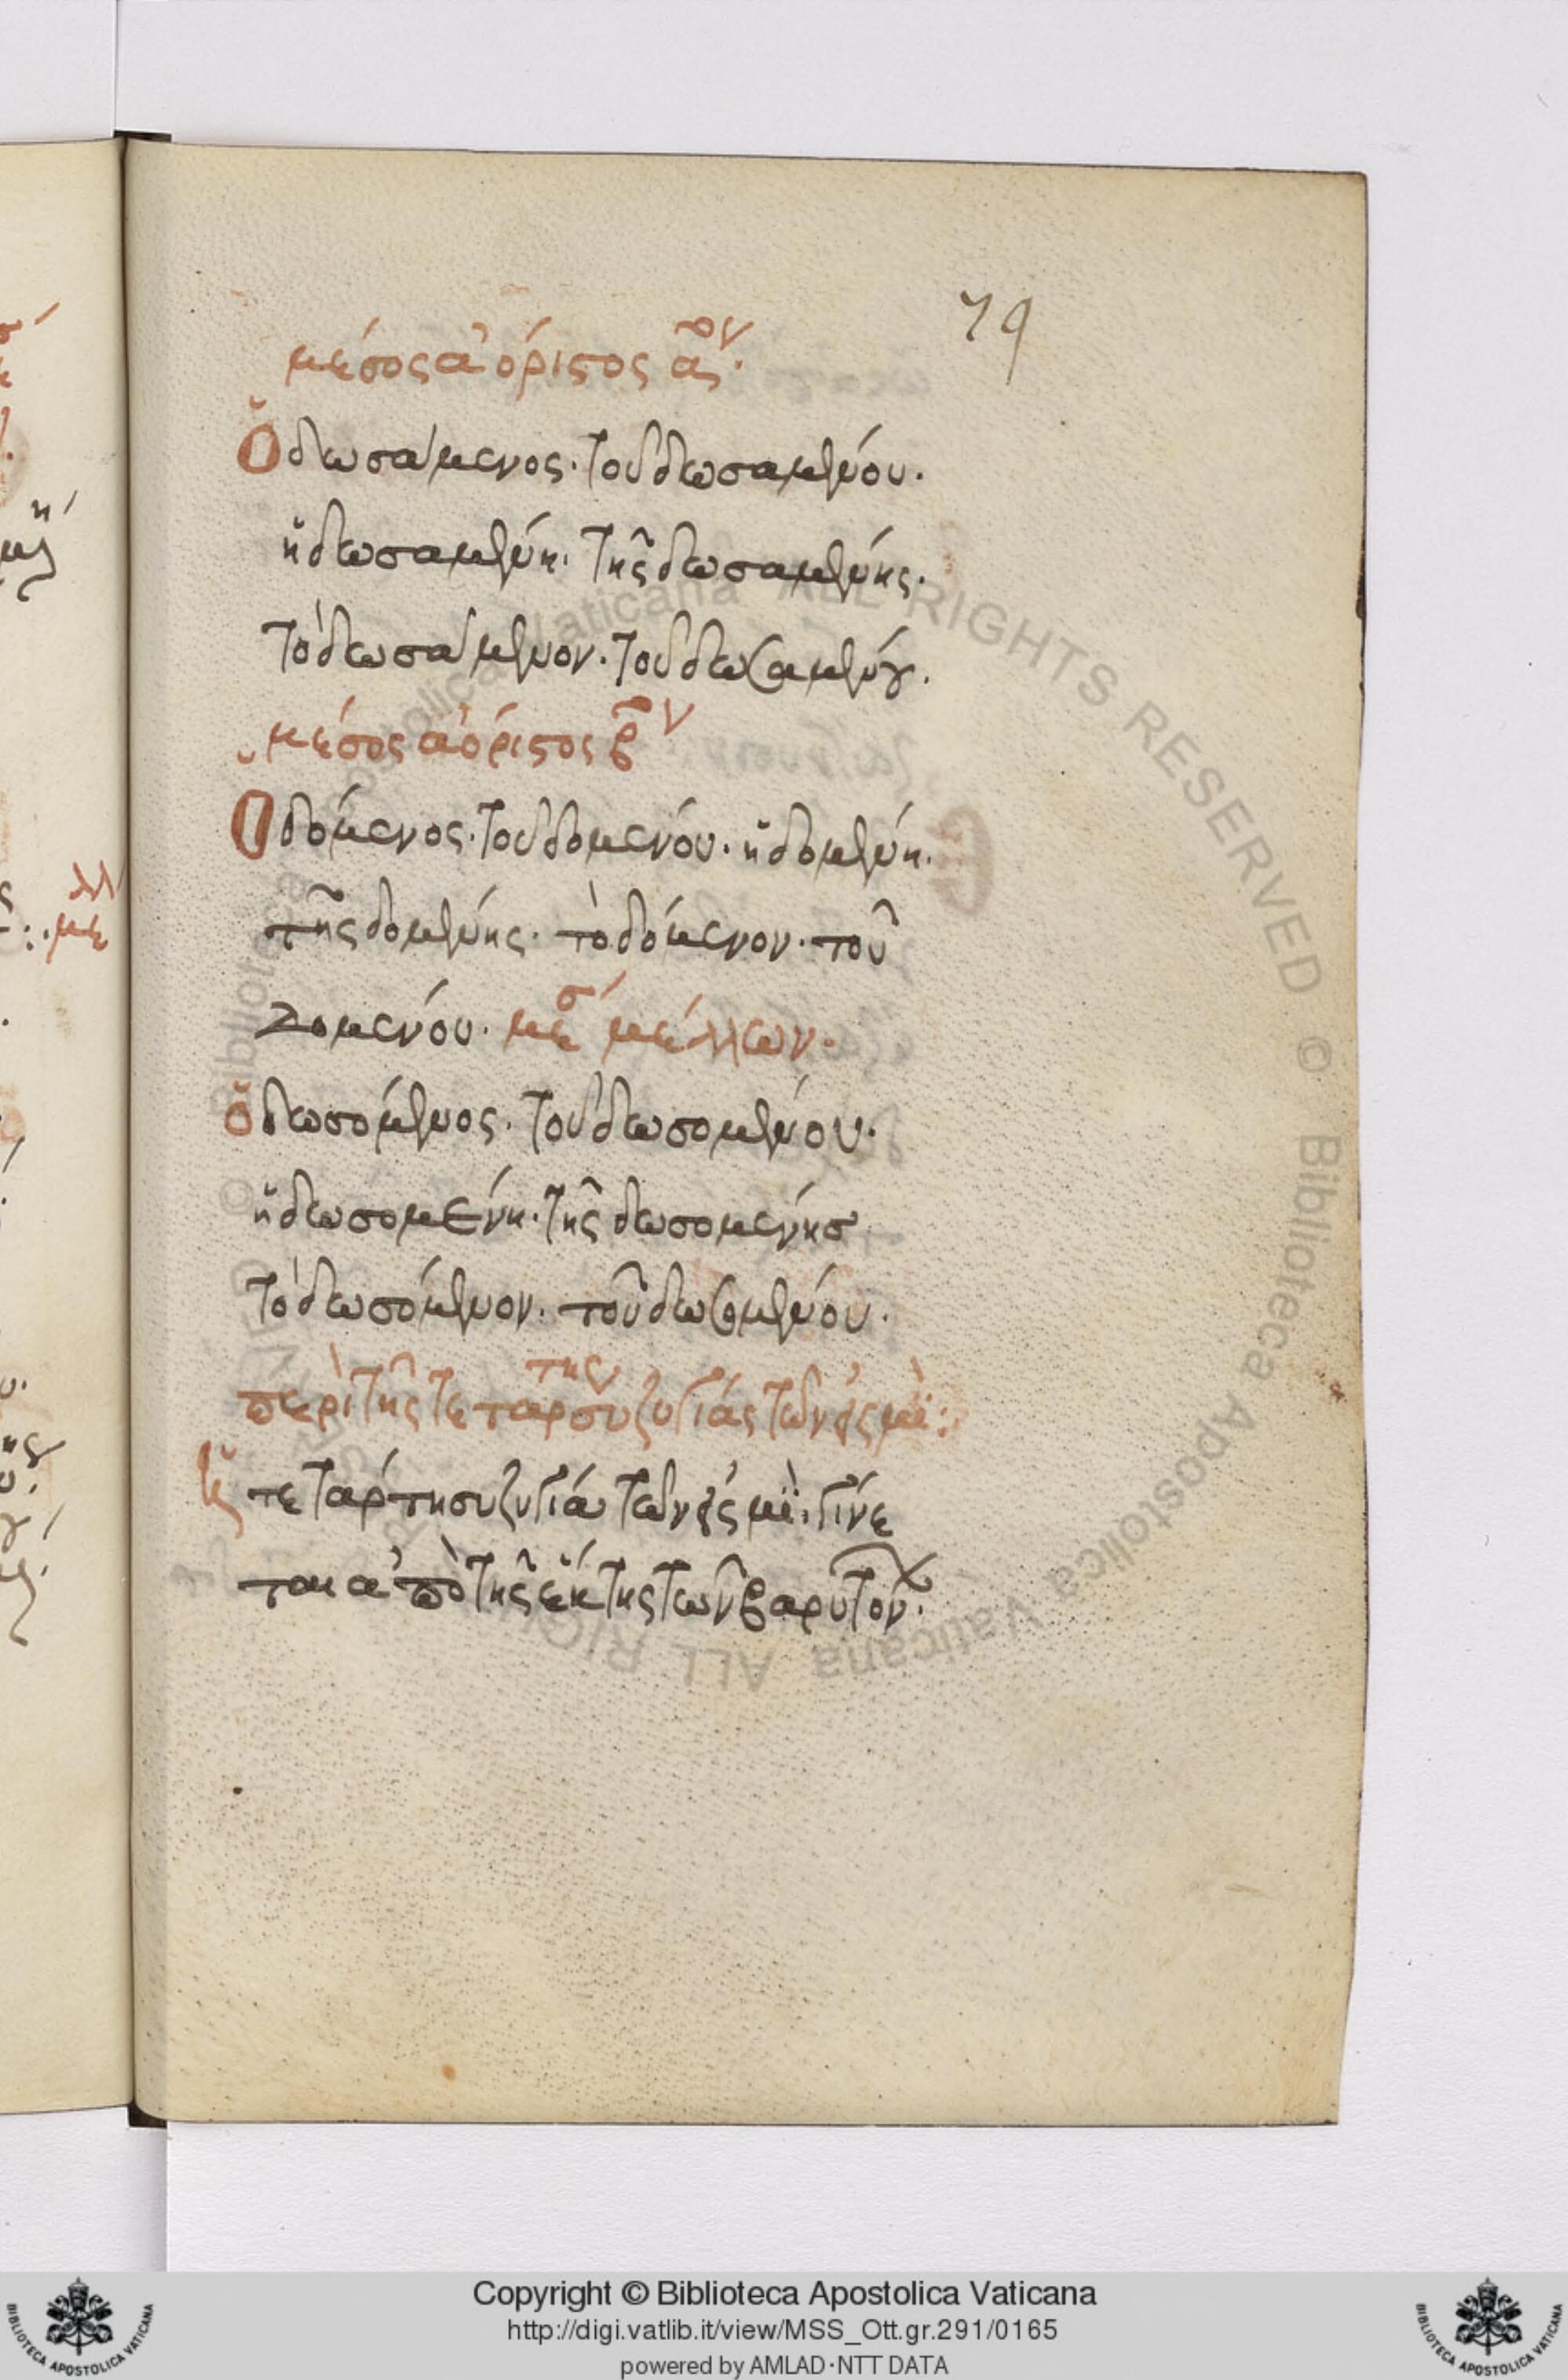 79
μέσος ἀόριστος αος.
Ὁ δωσάμενος. τοῦ δωσαμένου.
ἡ δωσαμένη. τῆς δωσαμένης.
τὸ δωσάμενον. τοῦ δωσαμένου.
μέσος ἀόριστος β
Ὁ δόμενος. τοῦ δομένου. ἡ δομένη.
τῆς δομένης. τὸ δόμενον. τοῦ
δομένου. μέσ μέλλων.
ὁ δωσόμενος. τοῦ δωσομένου.
ἡ δωσομένη. τῆς δωσομένησ
τὸ δωσόμενον. τοῦ δωσομένου.
περὶ τῆς τετάρτης συζυγίας τῶν εἰς μϊ:
Ἡ τετάρτη συζυγία τῶν εἰς μϊ. γίνε
ται ἀπὸ τῆς ἕκτης τῶν βαρυτόν.
Copyright © Biblioteca Apostolica Vaticana
http://digi.vatlib.it/view/MSS_Ott.gr.291/0165
powered by AMLAD·NTT DATA
BIBLIOTECA APOSTOLICA VATICANA
BIBLIOTECA APOSTOLICA VATICANA
© Biblioteca Apostolica Vaticana ALL RIGHTS RESERVED © Biblioteca Apostolica Vaticana ALL RIGHTS RESERVED